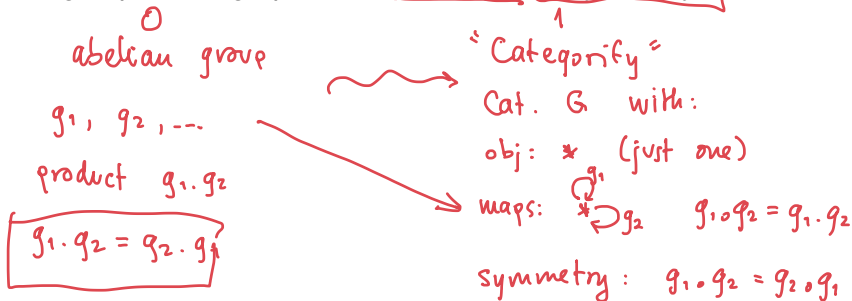 0
abelian group
g₁, g₂, ...
product g₁·g₂
g₁·g₂ = g₂·g₁
1
"Categorify"
Cat. G with:
obj: * (just one)
maps: * g₁ g₂ g₁∘g₂ = g₁·g₂
symmetry: g₁∘g₂ = g₂∘g₁